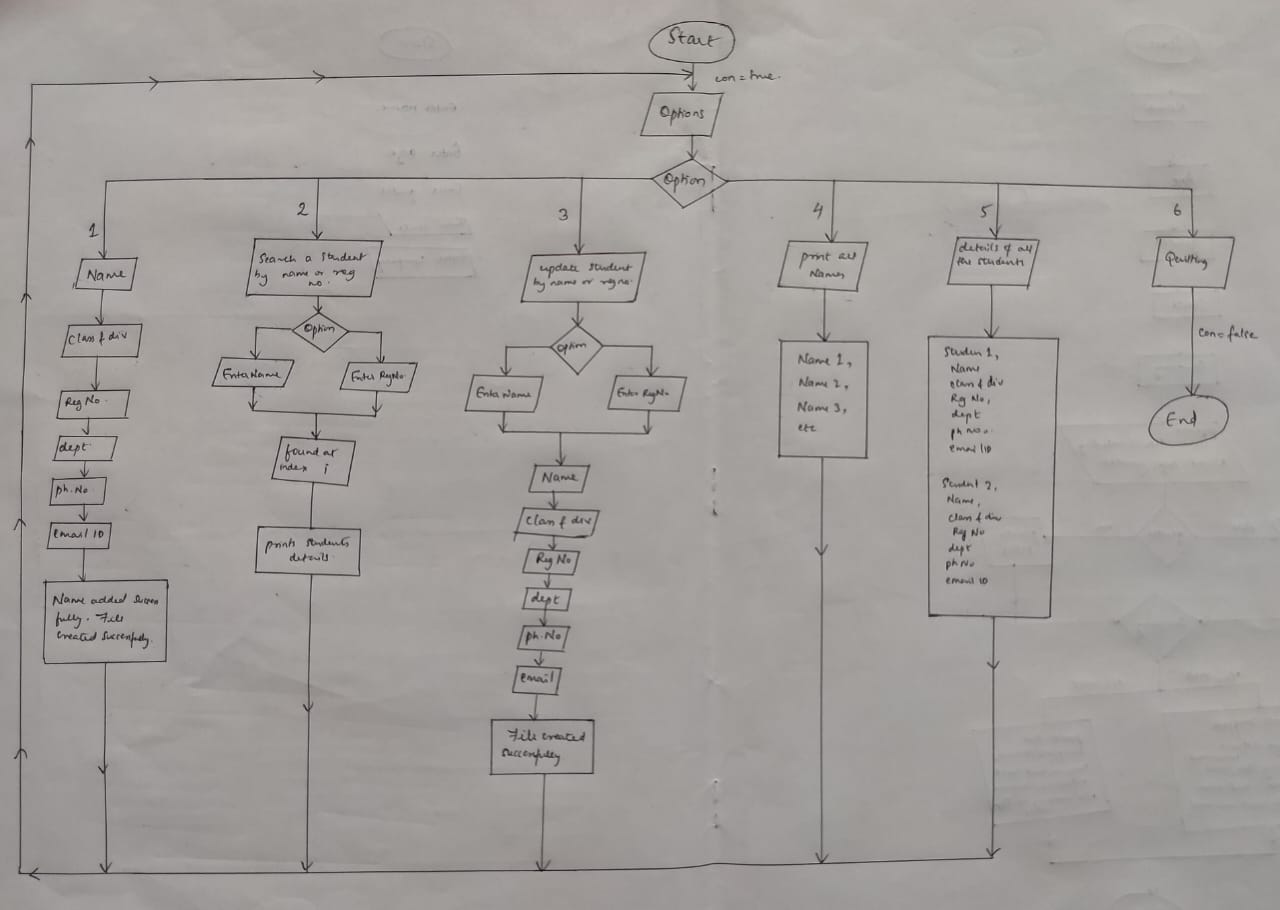 Start
con = true.
Options
Option i
1
Name
Class & div
Reg No.
dept
ph. No
email ID
Name added Succes
fully. File
created Successfully.
2
Search a student
by name or reg
no.
Option
Enter Name
Enter Reg No.
found at
index i
prints students
details.
3
update student
by name or reg no.
Option
Enter Name
Enter Reg No
Name
Class & div
Reg No
dept
ph. No
email
File created
successfully
4
print all
Names
Name 1,
Name 2,
Name 3,
etc
5
details of all
the students
Studen 1,
Name
class & div
Reg No,
dept
ph No.
email ID
Student 2,
Name,
Class & div
Reg No
dept
ph No
email ID
6
Quitting
con = false
End